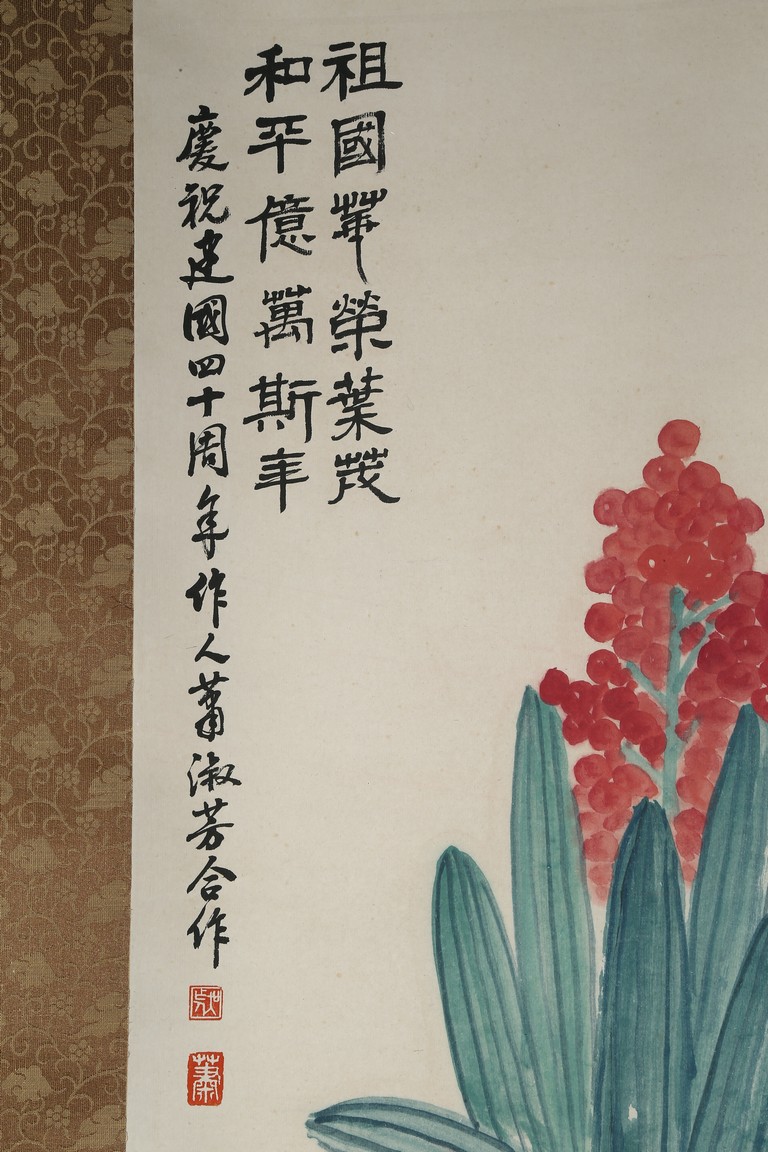 祖國華榮葉茂
和平億萬斯年
慶祝建國四十周年作人蕭淑芳合作
蕭